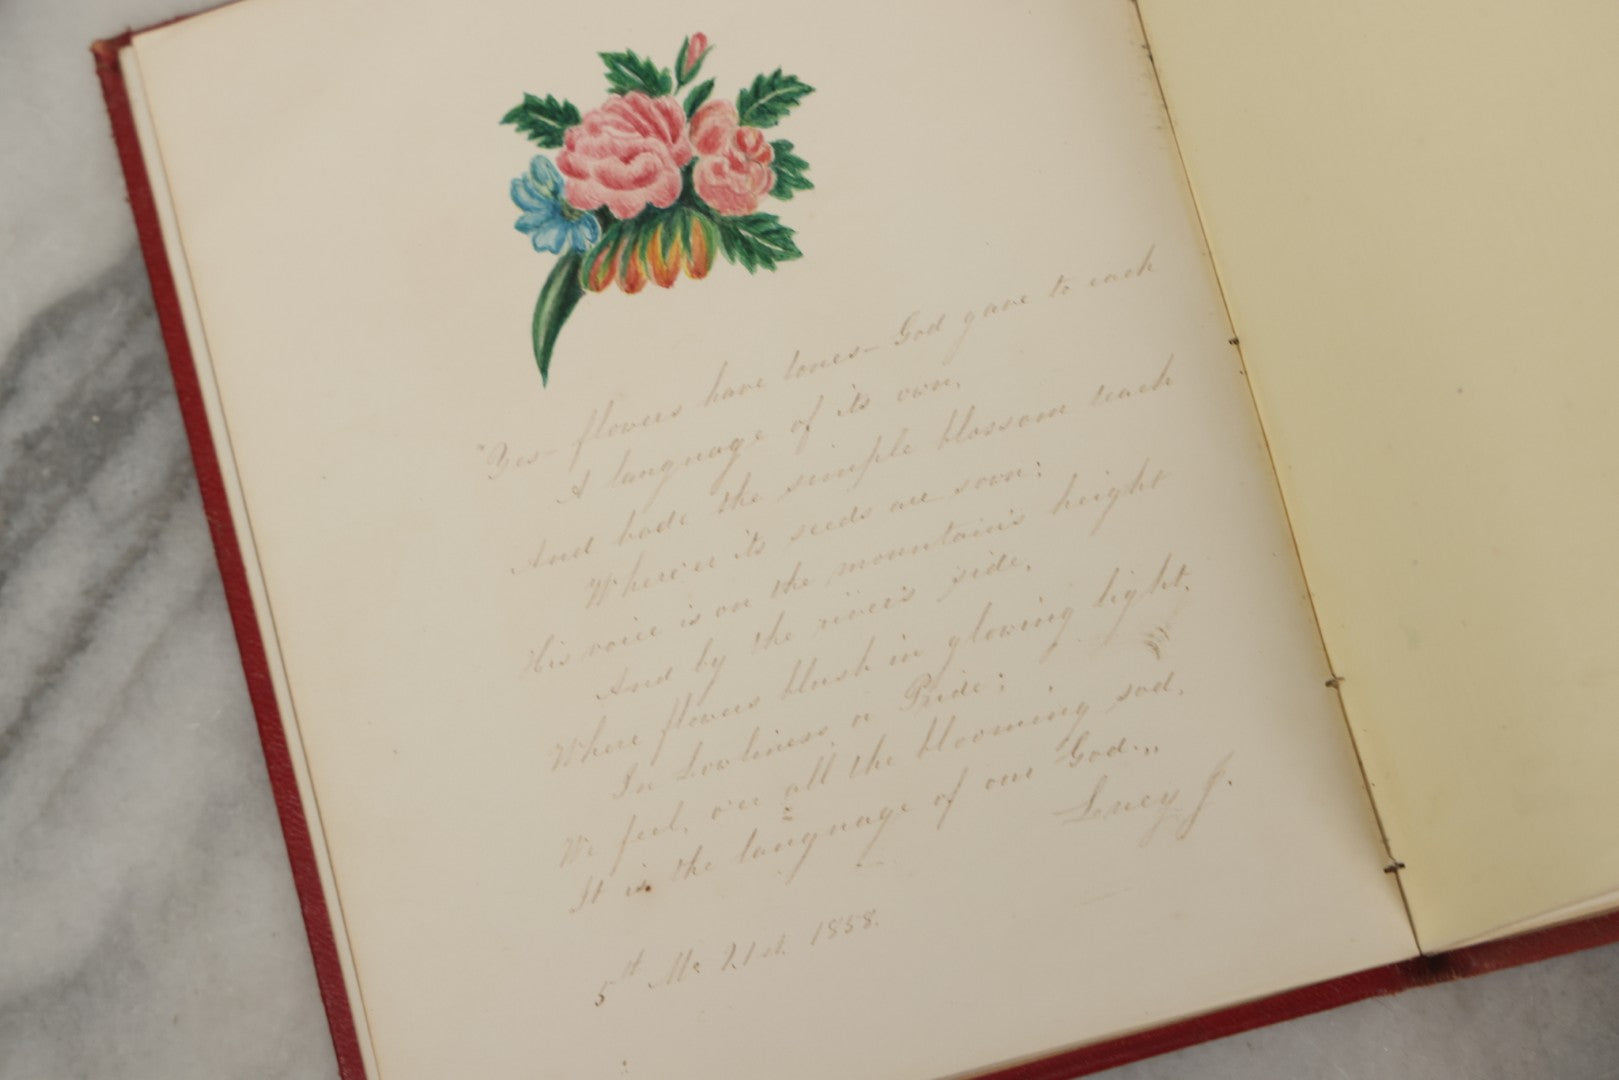 "Yes – flowers have tones – God gave to each
A language of its own,
And bade the simple blossom teach
Where'er its seeds are sown;
His voice is on the mountain's height
And by the river's side,
Where flowers blush in glowing light,
In Lowliness, or Pride;
We feel, o'er all the blooming sod,
It is the language of our God.„
Lucy J.
5th Mo 21st. 1858.